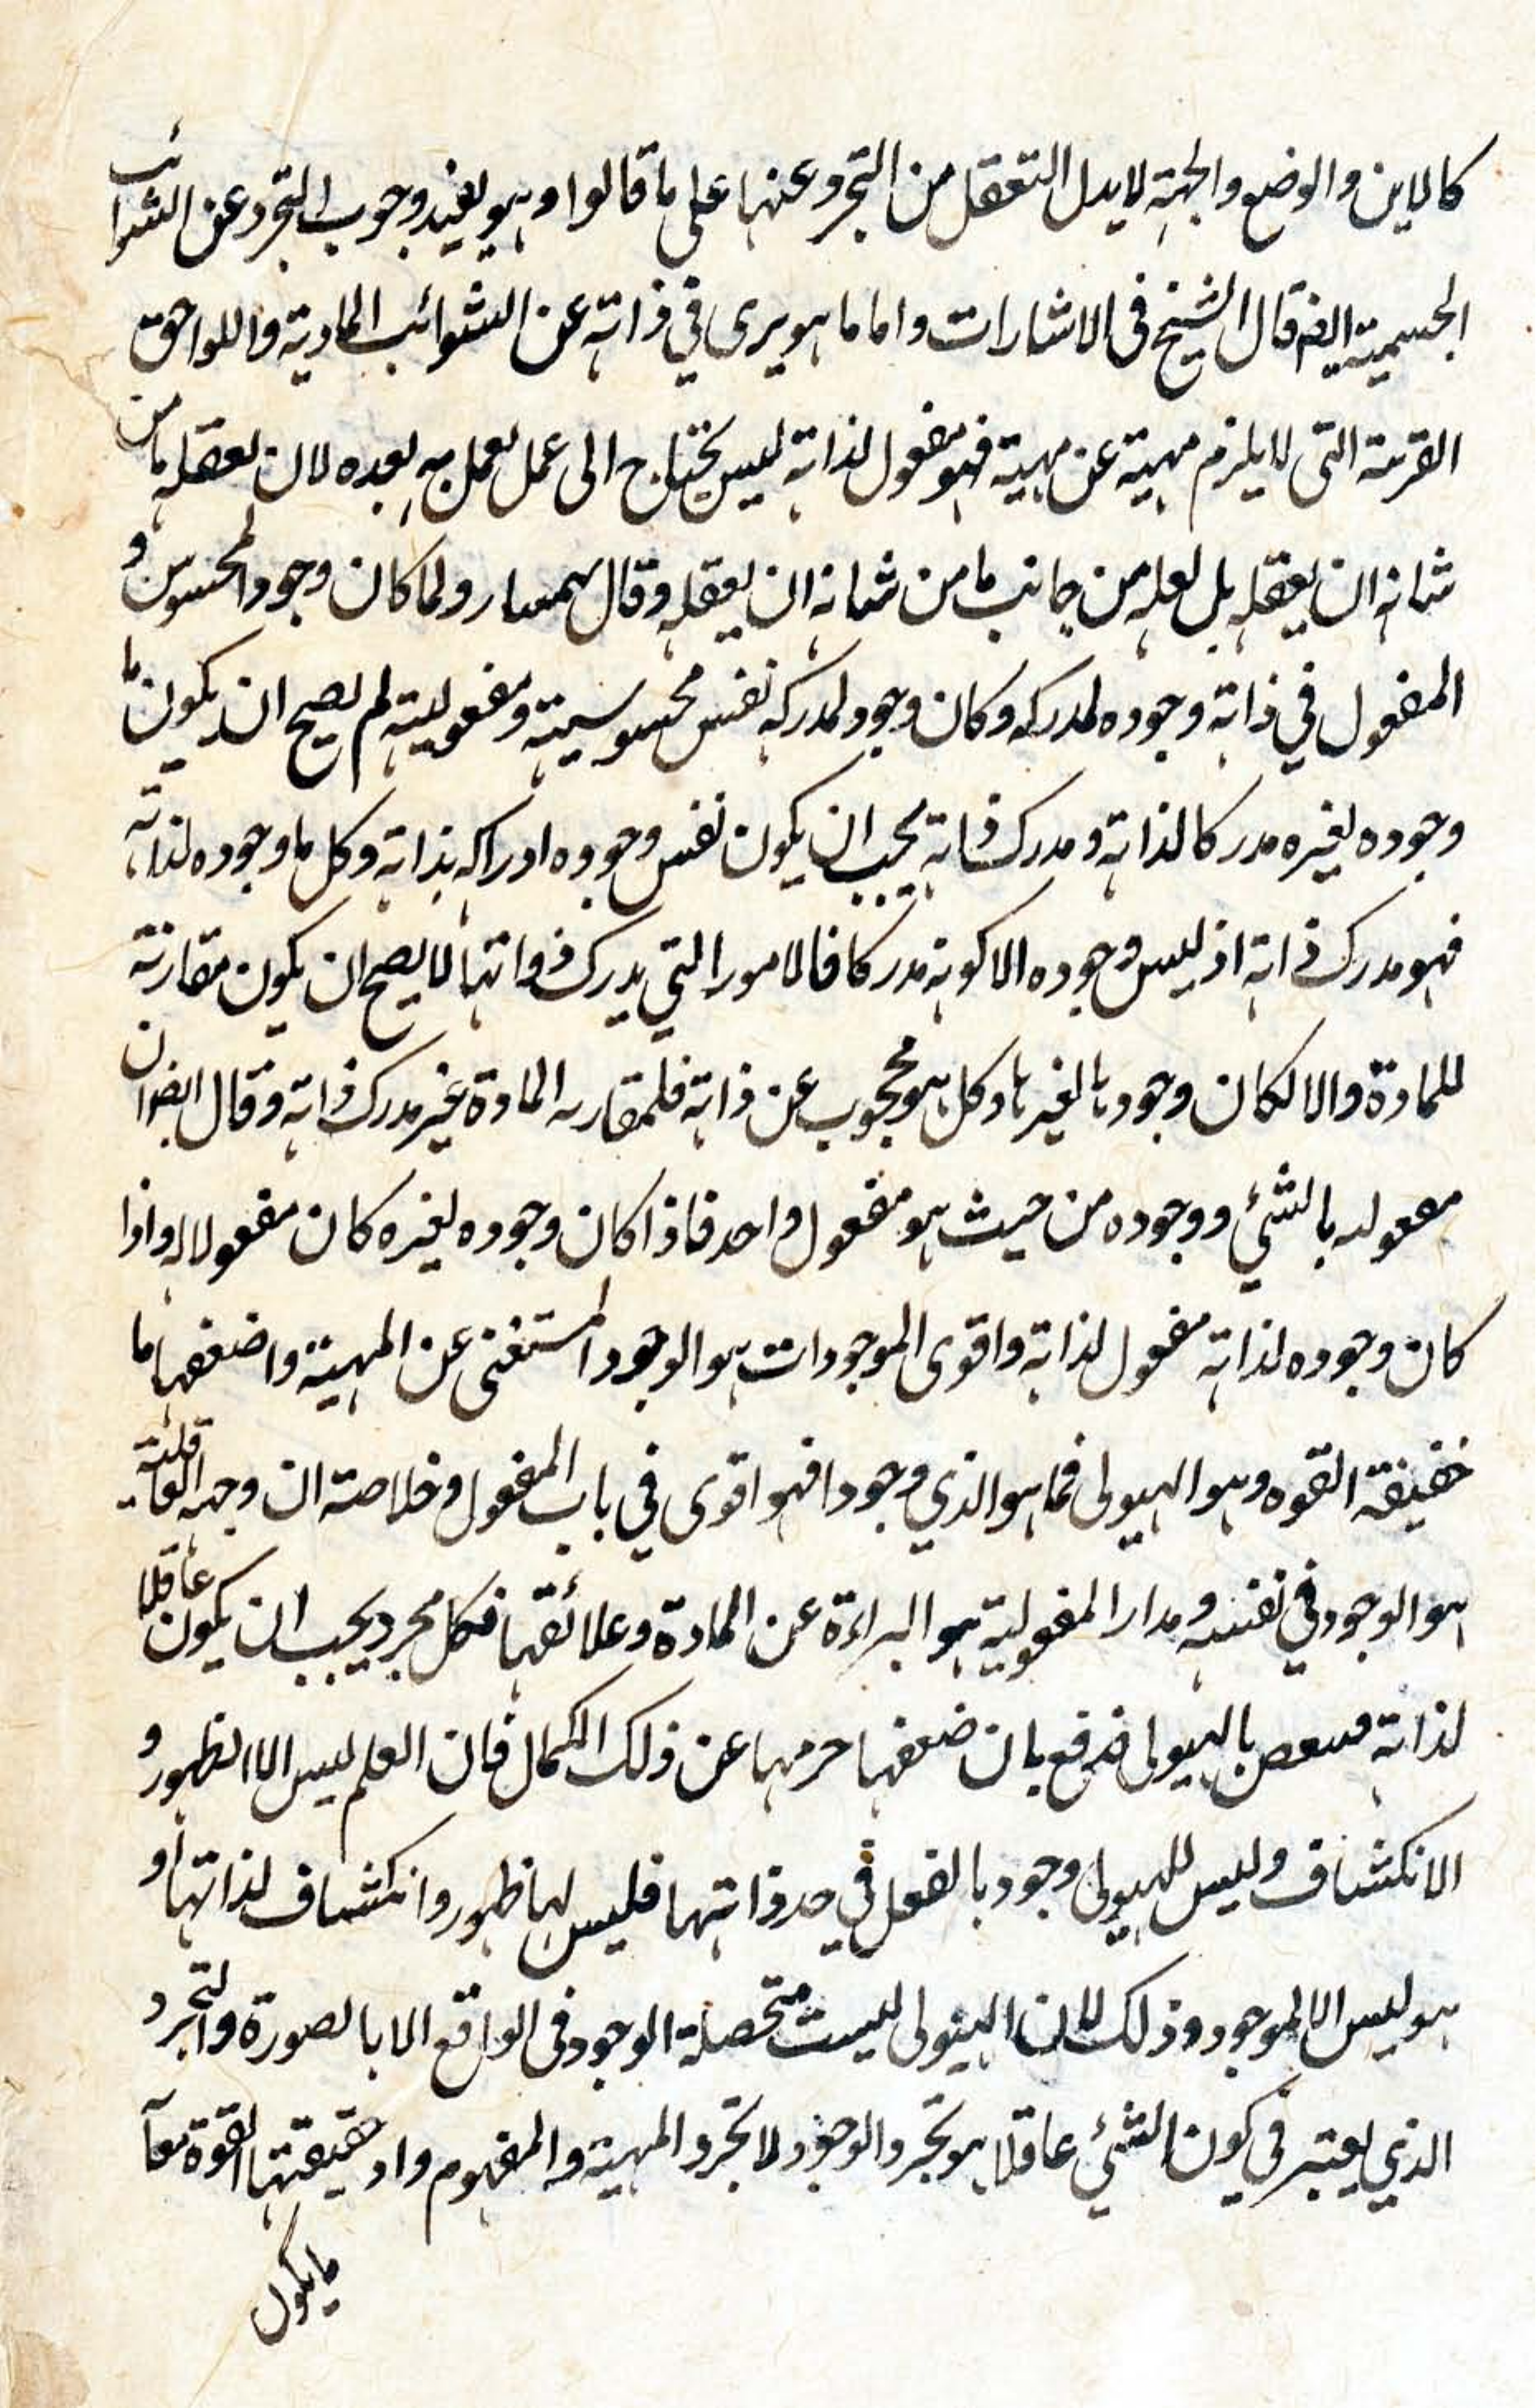 كالاين والوضع والجهة لابدل التعقل من التجرد عنها على ما قالوا وهو يفيد وجوب التجرد عن الشوائب
الجسمية ايضا قال الشيخ فى الاشارات واما ما هو برى في ذاته عن الشوائب المادية واللواحق
الغريبة التى لا يلزم مهيته عن مهيته فهو معقول لذاته ليس يحتاج الى عمل يعمل به بعده لان يعقله ما من
شانه ان يعقله بل لعله من جانب ما من شانه ان يعقله وقال بهمنيار ولما كان وجود المحسوس و
المعقول في ذاته وجوده لمدركه وكان وجود لمدركه نفس محسوسيته ومعقوليته لم يصح ان يكون ما
وجوده لغيره مدركا لذاته ومدرك ذاته يجب ان يكون نفس وجوده ادراكه بذاته وكل ما وجوده لذاته
فهو مدرك ذاته اذ ليس وجوده الا كونه مدركا فالامور التي يدرك ذواتها لا يصح ان يكون مقارنة
للمادة والا لكان وجودها لغيرها وكل هو محجوب عن ذاته فلمقارنه المادة غير مدرك ذاته وقال ايضا ان
معقوليه بالشئي ووجوده من حيث هو معقول واحد فاذا كان وجوده لغيره كان معقولا له واذا
كان وجوده لذاته معقول لذاته واقوى الموجودات هو الوجود المستغنى عن المهية واضعفها ما
حقيقة القوه وهو الهيولى فما هو الذي وجودا فهو اقوى في باب المعقول وخلاصته ان وجه العاقلية
هو الوجود في نفسه ومدار المعقولية هو البراءة عن المادة وعلائقها فكل مجرد يجب ان يكون عاقلا
لذاته بالهيولى فدفع بان ضعفها حرمها عن ذلك الكمال فان العلم ليس الا الظهور و
الانكشاف وليس للهيولى وجود بالفعل في حد ذاتها فليس لها ظهور وانكشاف لذاتها او
هو ليس الا لموجود وذلك لان الهيولى ليست متحصلة الوجود فى الواقع الا بالصورة والتجرد
الذي يعتبر في كون الشئي عاقلا هو تجرد الوجود لا تجرد المهية والمفهوم واد حقيقتها القوة معآ
ما يكون